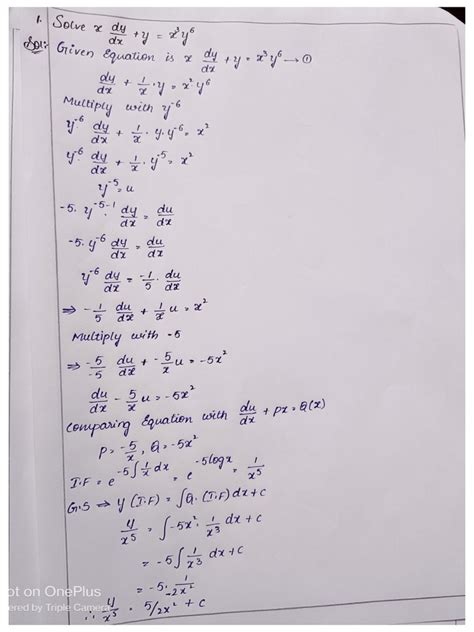 1. Solve x dy/dx + y = x³y⁶
Sol:- Given Equation is x dy/dx + y = x³y⁶ → ①
dy/dx + 1/x · y = x² y⁶
Multiply with y⁻⁶
y⁻⁶ dy/dx + 1/x · y · y⁻⁶ = x²
y⁻⁶ dy/dx + 1/x · y⁻⁵ = x²
y⁻⁵ = u
-5 · y⁻⁵⁻¹ dy/dx = du/dx
-5 · y⁻⁶ dy/dx = du/dx
y⁻⁶ dy/dx = -1/5 · du/dx
⇒ -1/5 du/dx + 1/x u = x²
Multiply with -5
⇒ -5/-5 du/dx + -5/x u = -5x²
du/dx - 5/x u = -5x²
Comparing Equation with du/dx + px = Q(x)
P = -5/x, Q = -5x²
I.F = e^-5∫1/x dx = e^-5logx = 1/x⁵
G.S ⇒ y (I.F) = ∫Q. (I.F) dx + c
y/x⁵ = ∫-5x² · 1/x³ dx + c
= -5 ∫ 1/x³ dx + c
= -5 · 1/-2x²
∴ y/x⁵ = 5/2x² + c
ot on OnePlus
ered by Triple Camera